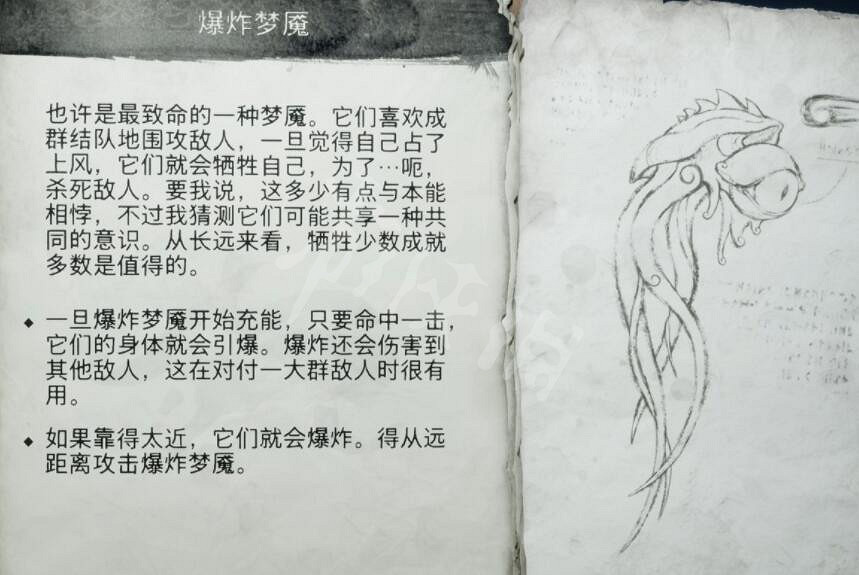 爆炸梦魇
也许是最致命的一种梦魇。它们喜欢成
群结队地围攻敌人，一旦觉得自己占了
上风，它们就会牺牲自己，为了…呃，
杀死敌人。要我说，这多少有点与本能
相悖，不过我猜测它们可能共享一种共
同的意识。从长远来看，牺牲少数成就
多数是值得的。
◆ 一旦爆炸梦魇开始充能，只要命中一击，
它们的身体就会引爆。爆炸还会伤害到
其他敌人，这在对付一大群敌人时很有
用。
◆ 如果靠得太近，它们就会爆炸。得从远
距离攻击爆炸梦魇。